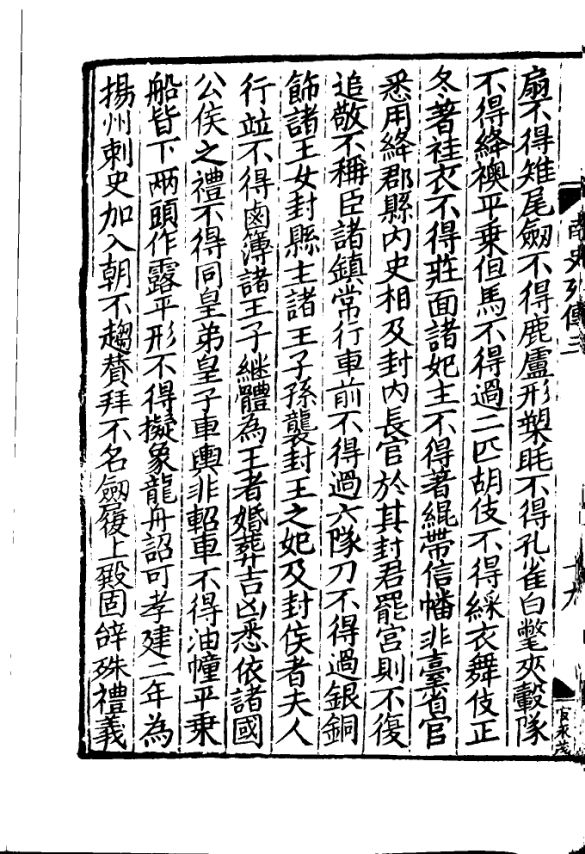 南史列傳三
十九
官永茂
扇不得雉尾劔不得鹿盧形槊毦不得孔雀白氅夾轂隊
不得絳襖平乗但馬不得過二匹胡伎不得綵衣舞伎正
冬著袿衣不得莊面諸妃主不得著緄帶信幡非臺省官
悉用絳郡縣內史相及封內長官於其封君罷官則不復
追敬不稱臣諸鎮常行車前不得過六隊刀不得過銀銅
飾諸王女封縣主諸王子孫襲封王之妃及封侯者夫人
行竝不得鹵簿諸王子継體為王者婚葬吉凶悉依諸國
公侯之禮不得同皇弟皇子車輿非軺車不得油幢平乗
船皆下兩頭作露平形不得擬象龍舟詔可孝建二年為
揚州刺史加入朝不趨賛拜不名劔履上殿固辝殊禮義